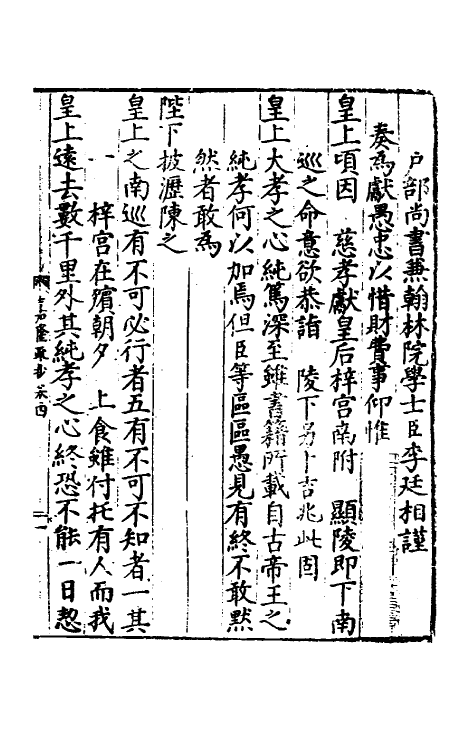 戶部尚書兼翰林院學士臣李廷相謹
奏為獻愚忠以惜財費事仰惟
皇上項因　慈孝獻皇后梓宮南附　顯陵即下南
巡之命意欲恭詣　陵下另卜吉兆此固
皇上大孝之心純篤深至雖書籍所載自古帝王之
純孝何以加焉但臣等區區愚見有終不敢默
然者敢為
陛下披瀝陳之
皇上之南巡有不可必行者五有不可不知者一其
一　梓宮在殯朝夕　上食雖付托有人而我
皇上遠去數千里外其純孝之心終恐不能一日恝
嘉隆疏抄卷四